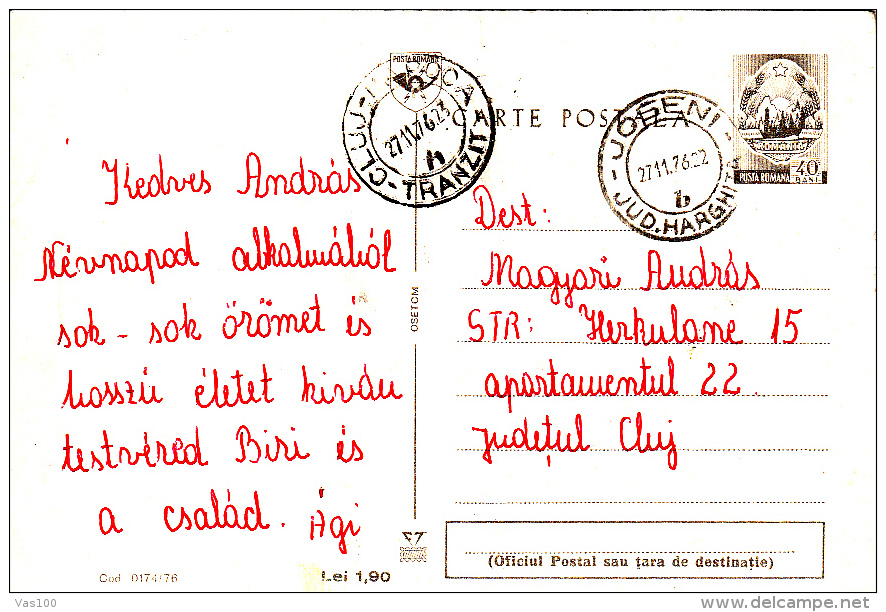 POSTA ROMANA
CARTE POSTALA
CLUJ-NAPOCA
27.11.76.23
h
-TRANZIT-
-JOSENI-
27.11.76.22
b
JUD.HARGHITA
POSTA ROMANA 40 BANI
Kedves András
Névnapod alkalmából
sok - sok örömet és
hosszú életet kiván
testvéred Biri és
a család. Ági
OSETCM
Dest:
Magyari András
STR: Herkulane 15
apartamentul 22.
județul Cluj
(Oficiul Postal sau țara de destinație)
Cod 0174/76
Lei 1,90
Vas100
www.delcampe.net